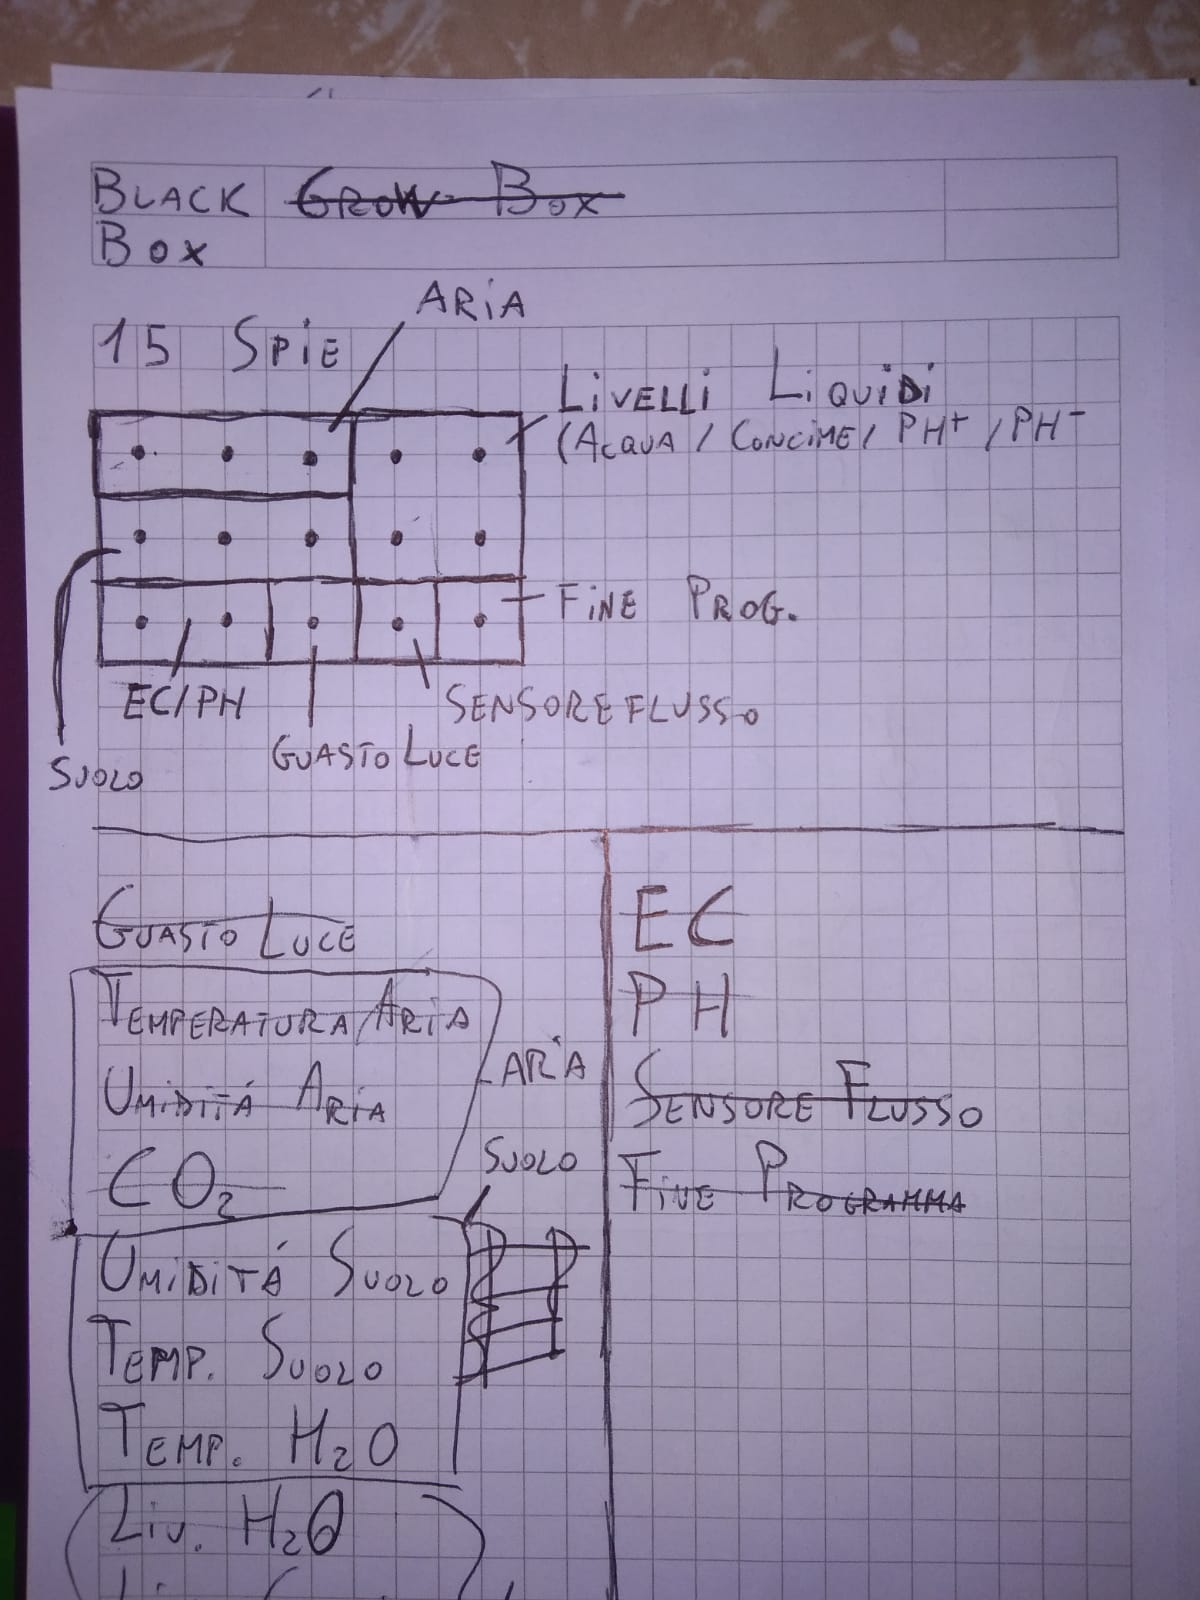 BLACK BOX
GROW BOX
ARIA
15 SPIE
LIVELLI LIQUIDI
(ACQUA / CONCIME / PH+ / PH-
FINE PROG.
EC/PH
SENSORE FLUSSO
GUASTO LUCE
SUOLO
GUASTO LUCE
TEMPERATURA ARIA
UMIDITÁ ARIA
ARIA
CO2
SUOLO
UMIDITÁ SUOLO
TEMP. SUOLO
TEMP. H2O
LIV. H2O
EC
PH
SENSORE FLUSSO
FINE PROGRAMMA